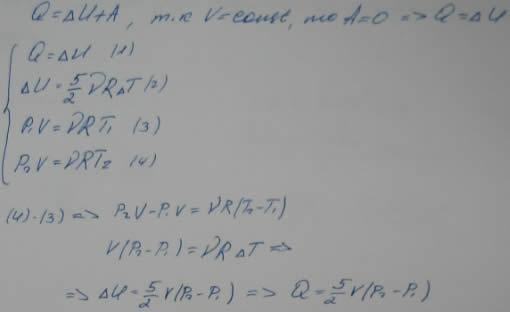 Q=ΔU+A, т.к V=const, то A=0 => Q=ΔU
Q=ΔU (1)
ΔU=5/2 νRΔT (2)
P₁V=νRT₁ (3)
P₂V=νRT₂ (4)
(4)-(3) => P₂V-P₁V=νR(T₂-T₁)
V(P₂-P₁)=νRΔT =>
=> ΔU=5/2 V(P₂-P₁) => Q=5/2 V(P₂-P₁)